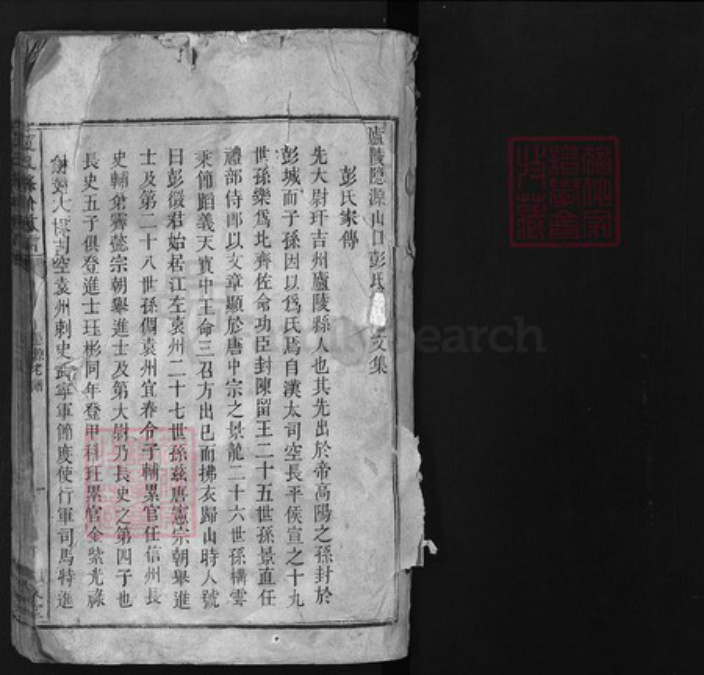 廬陵隱源山口彭氏 文集
彭氏家傳
先大尉玕吉州廬陵縣人也其先出於帝高陽之孫封於
彭城而子孫因以爲氏焉自漢太司空長平侯宣之十九
世孫樂爲北齊佐命功臣封陳留王二十五世孫景直任
禮部侍郎以文章顯於唐中宗之景龍二十六世孫構雲
乘節蹈義天寶中王命三召方出已而拂衣歸山時人號
曰彭徵君始居江左袁州二十七世孫茲唐憲宗朝舉進
士及第二十八世孫倜袁州宜春令子輔累官任信州長
史輔弟霽懿宗朝舉進士及第大尉乃長史之第四子也
長史五子俱登進士珏彬同年登甲科玨累官金紫光祿
大 司空袁州刺史武寧軍節度使行軍司馬特進
search